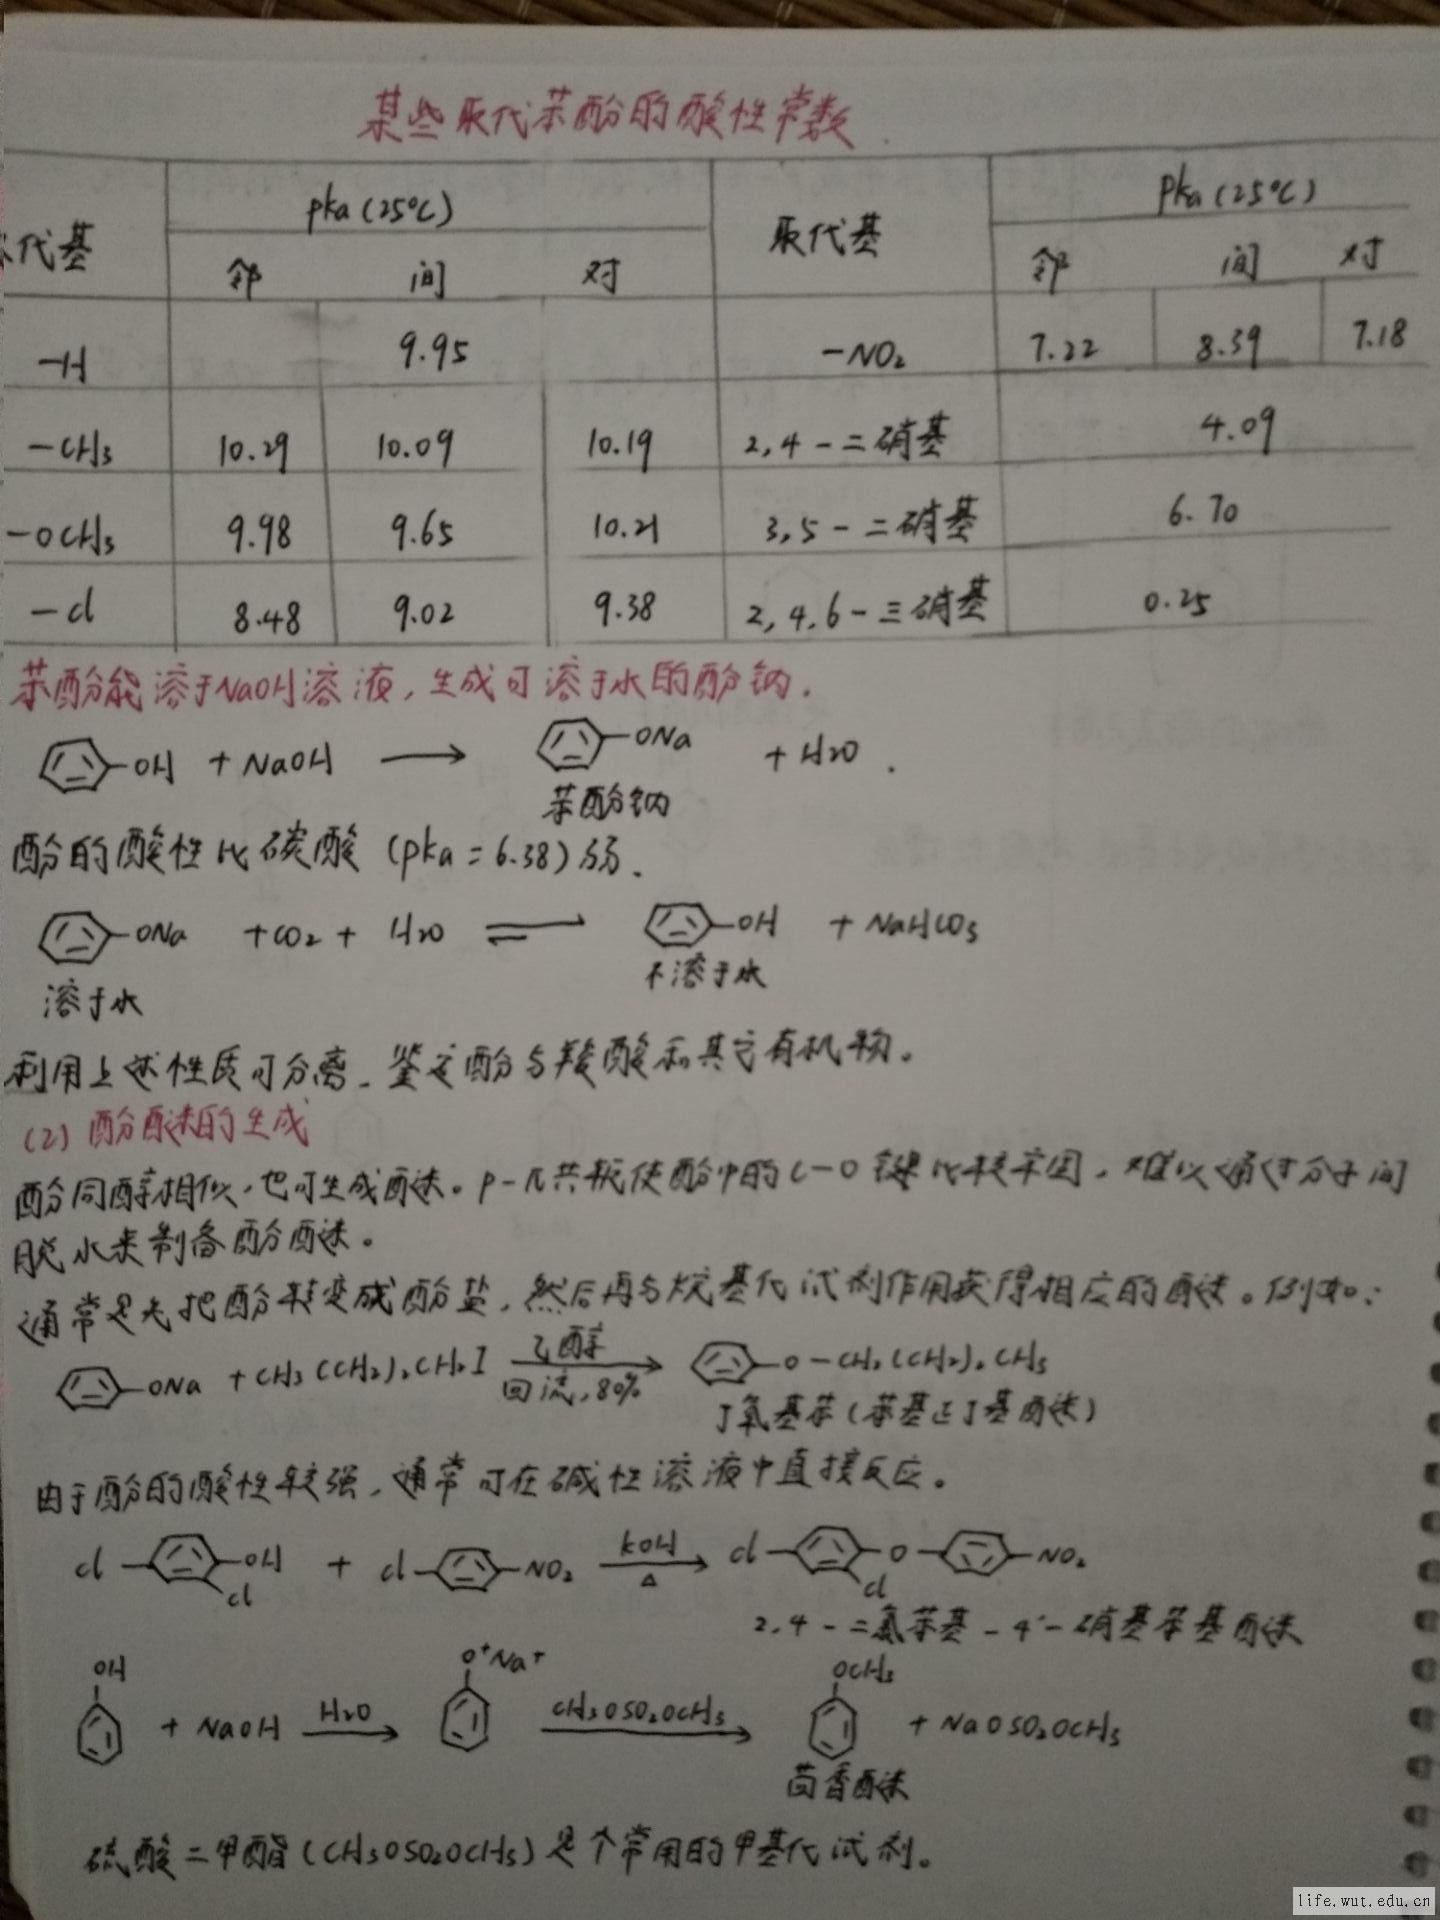 某些取代苯酚的酸性常数
代基 pka(25℃) 取代基 pka(25℃)
邻 间 对 邻 间 对
-H 9.95 -NO₂ 7.22 8.39 7.18
-CH₃ 10.29 10.09 10.19 2,4-二硝基 4.09
-OCH₃ 9.98 9.65 10.21 3,5-二硝基 6.70
-Cl 8.48 9.02 9.38 2,4,6-三硝基 0.25
苯酚能溶于NaOH溶液,生成可溶于水的酚钠.
OH + NaOH → ONa + H₂O.
苯酚钠
酚的酸性比碳酸(pka=6.38)弱.
ONa +CO₂ + H₂O ⇌ OH + NaHCO₃
溶于水 不溶于水
利用上述性质可分离、鉴定酚与羧酸和其它有机物。
(2) 酚醚的生成
酚同醇相似,也可生成醚。p-π共轭使酚中的C-O键比较牢固,难以通过分子间
脱水来制备酚醚。
通常是先把酚转变成酚盐,然后再与烷基化试剂作用获得相应的醚。例如:
ONa + CH₃(CH₂)₂CH₂I 乙醇 回流,80% → O-CH₂(CH₂)₂CH₃
丁氧基苯(苯基正丁基醚)
由于酚的酸性较强,通常可在碱性溶液中直接反应。
Cl OH Cl + Cl NO₂ KOH △ → Cl O Cl NO₂
2,4-二氯苯基-4'-硝基苯基醚
OH + NaOH H₂O → O⁺Na⁺ CH₃OSO₂OCH₃ → OCH₃ + NaOSO₂OCH₃
茴香醚
硫酸二甲酯(CH₃OSO₂OCH₃)是个常用的甲基化试剂。
life.wut.edu.cn